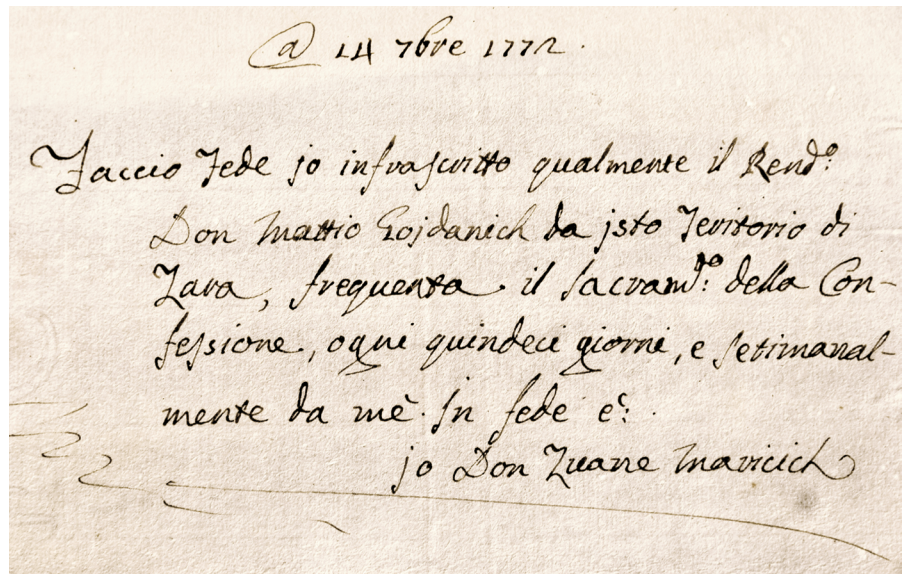 @ 14 7bre 1772.
Faccio Fede jo infrascritto qualmente il Rend.º
Don Mattio Gojdanich da jsto Teritorio di
Zara, frequenta il sacram.º della Con-
fessione, ogni quindeci giorni, e setimanal-
mente da mè. Jn fede e:
jo Don Zuane Maricich